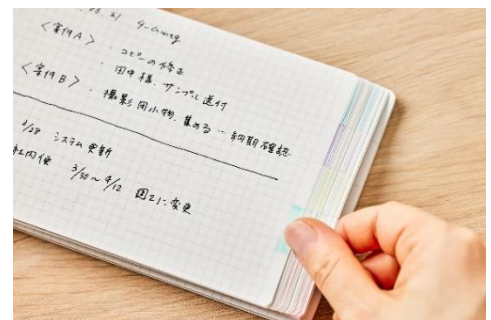 21 g-cumeg
<案件A>
・コピーの修正
・田中様、サンプル送付
<案件B>
・撮影用小物、集める…納期確認
3/28 システム更新
社内便 3/30〜4/12 週2に変更